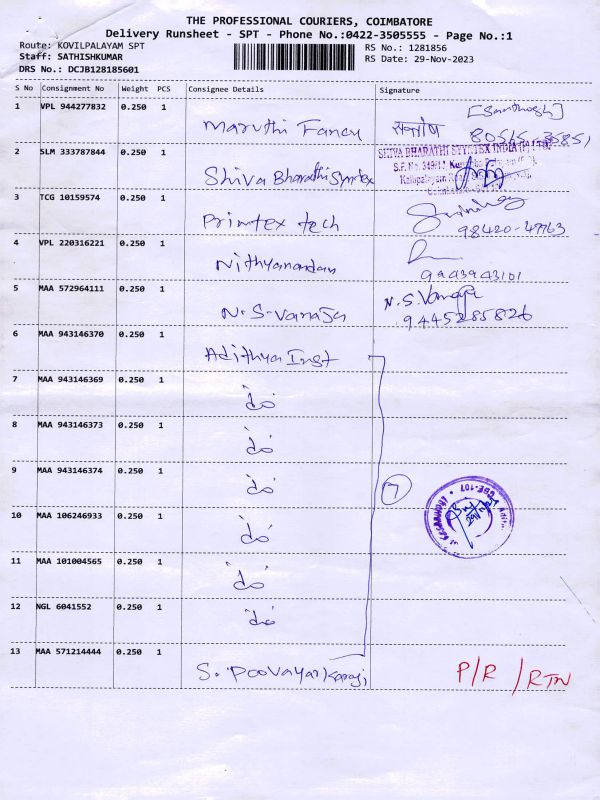 THE PROFESSIONAL COURIERS, COIMBATORE
Delivery Runsheet - SPT - Phone No.:0422-3505555 - Page No.:1
Route: KOVILPALAYAM SPT
Staff: SATHISHKUMAR
DRS No.: DCJB128185601
RS No.: 1281856
RS Date: 29-Nov-2023
S No Consignment No Weight PCS Consignee Details Signature
1 VPL 944277832 0.250 1 Maruthi Fancy सन्तोष [Santhosh]
2 SLM 333787844 0.250 1 Shiva Bharathi Syntex
SHIVA BHARATHI SYNTEX INDIA (P) LTD
3 TCG 10159574 0.250 1 Primtex tech
98420-49763
4 VPL 220316221 0.250 1 Nithyanandan
9443943101
5 MAA 572964111 0.250 1 N.S.Vanaja N.S.Vanaja
9445285826
6 MAA 943146370 0.250 1 Adithya Inst
7 MAA 943146369 0.250 1 do
8 MAA 943146373 0.250 1 do
9 MAA 943146374 0.250 1 do 7
10 MAA 106246933 0.250 1 do
11 MAA 101004565 0.250 1 do
12 NGL 6041552 0.250 1 do
13 MAA 571214444 0.250 1 S. Poovayar P/R / RTN